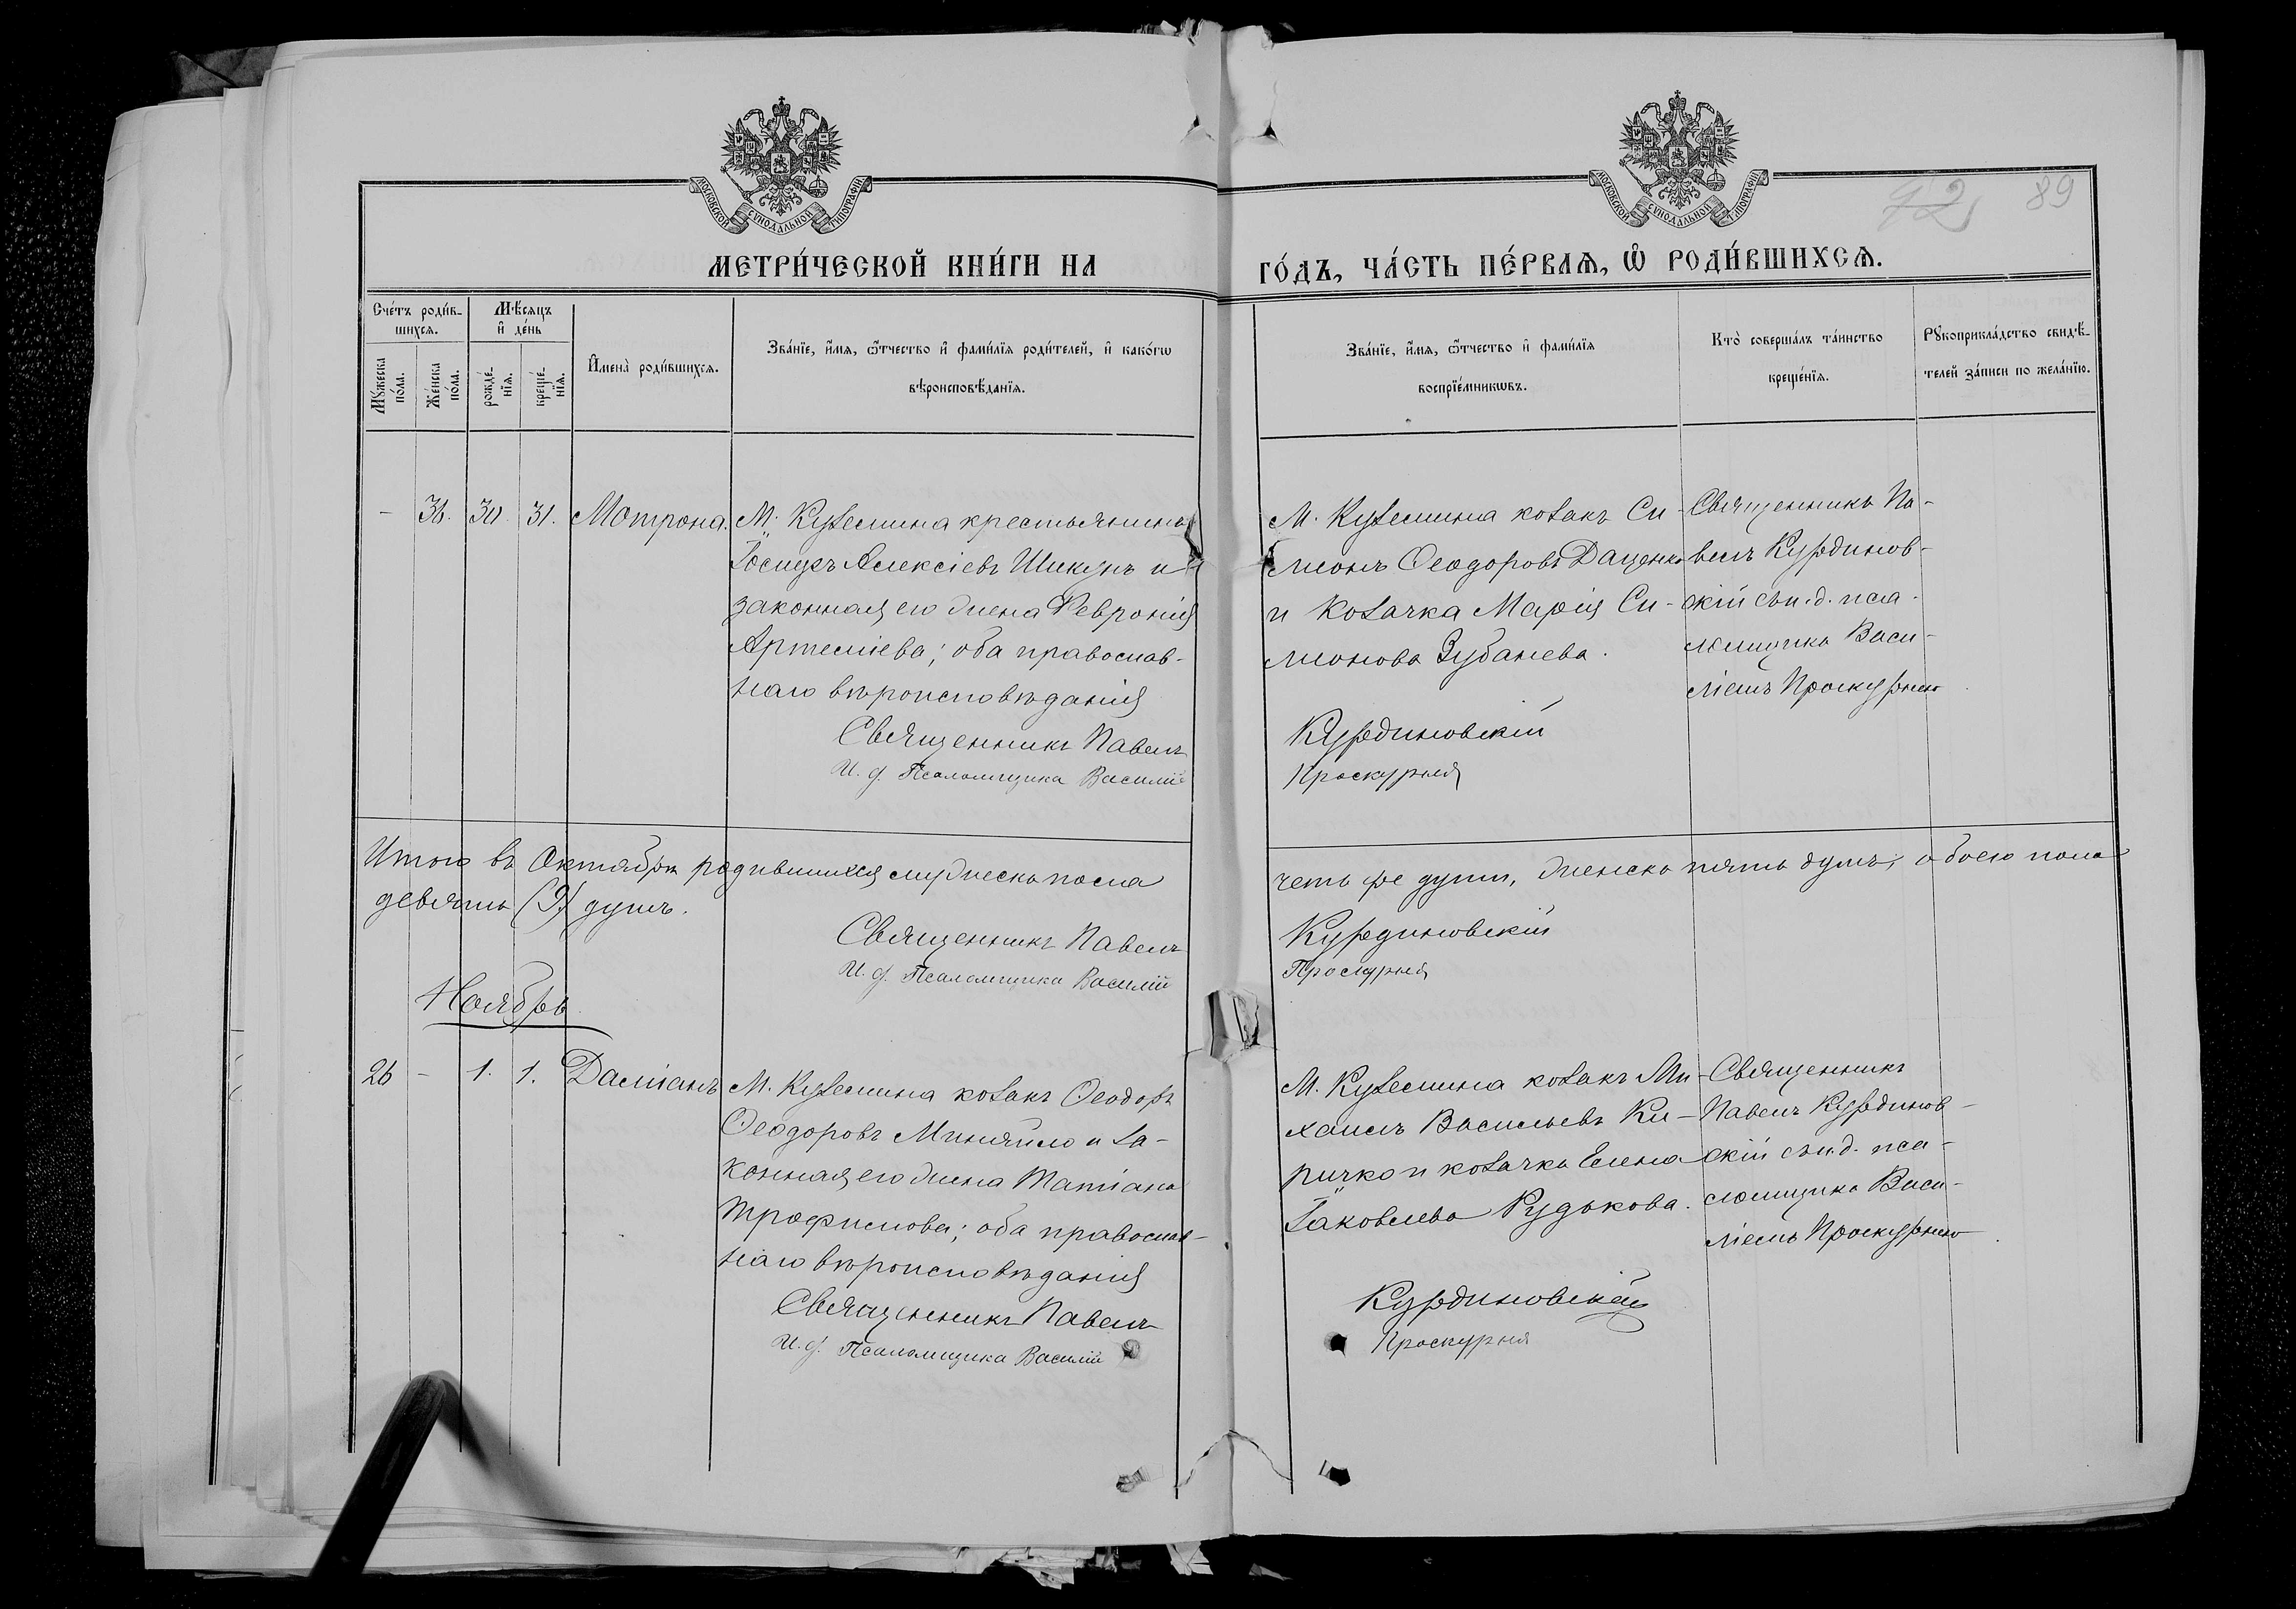 МОСКОВСКОЙ СѴНОДАЛЬНОЙ ТИПОГРАФІИ
МОСКОВСКОЙ СѴНОДАЛЬНОЙ ТИПОГРАФІИ
72 89
МЕТРИ́ЧЕСКОЙ КНИ́ГИ НА
ГО́ДЪ, ЧА́СТЬ ПЕ́РВАѦ, Ѡ҆ РОДИ́ВШИХСѦ.
Сче́тъ роди́в-
шихсѧ.
Мѹжеска по́ла.
Же́нска по́ла.
Мѣ́сѧцъ
и҆ де́нь
рожде́-
нїѧ.
креще́-
нїѧ.
И҆мена̀ роди́вшихсѧ.
Зва́нїе, и҆́мѧ, ѻ҆́тчество и҆ фами́лїѧ роди́телей, и҆ како́гѡ
вѣроисповѣ́данїѧ.
Зва́нїе, и҆́мѧ, ѻ҆́тчество и҆ фами́лїѧ
воспрїе́мникѡвъ.
Кто̀ соверша́лъ та́инство
креще́нїѧ.
Рꙋкоприкла́дство свидѣ́-
телей за́писи по жела́нїю.
- 36. 30 31. Мотрона.
М. Куземина крестьянинъ
Іосифъ Алексіевъ Шикунъ и
законная его жена Феvронія
Артеміева; оба православ-
наго вѣроисповѣданія
Священникъ Павелъ
И. д. Псаломщика Василій
М. Куземина козакъ Си-
меонъ Ѳеодоровъ Даценко
и козачка Марія Си-
меонова Зубанева.
Курдиновскій
Проскурня
Священникъ Па-
велъ Курдинов-
скій съ и. д. пса-
ломщика Васи-
ліемъ Проскурнею
Итого въ Октябрѣ родившихся мужеска пола
четыре души, женска пять душъ, обоего пола
девять (9) душъ.
Священникъ Павелъ
И. д. Псаломщика Василій
Курдиновскій
Проскурня
Ноябрь
26 - 1. 1. Даміанъ
М. Куземина козакъ Ѳеодоръ
Ѳеодоровъ Миняйло и за-
конная его жена Татіана
Трофимова; оба православ-
наго вѣроисповѣданія
Священникъ Павелъ
И. д. Псаломщика Василій
М. Куземина козакъ Ми-
хаилъ Васильевъ Ки-
ричко и козачка Елена
Іаковлева Рудькова.
Курдиновскій
Проскурня
Священникъ
Павелъ Курдинов-
скій съ и. д. пса-
ломщика Васи-
ліемъ Проскурнею